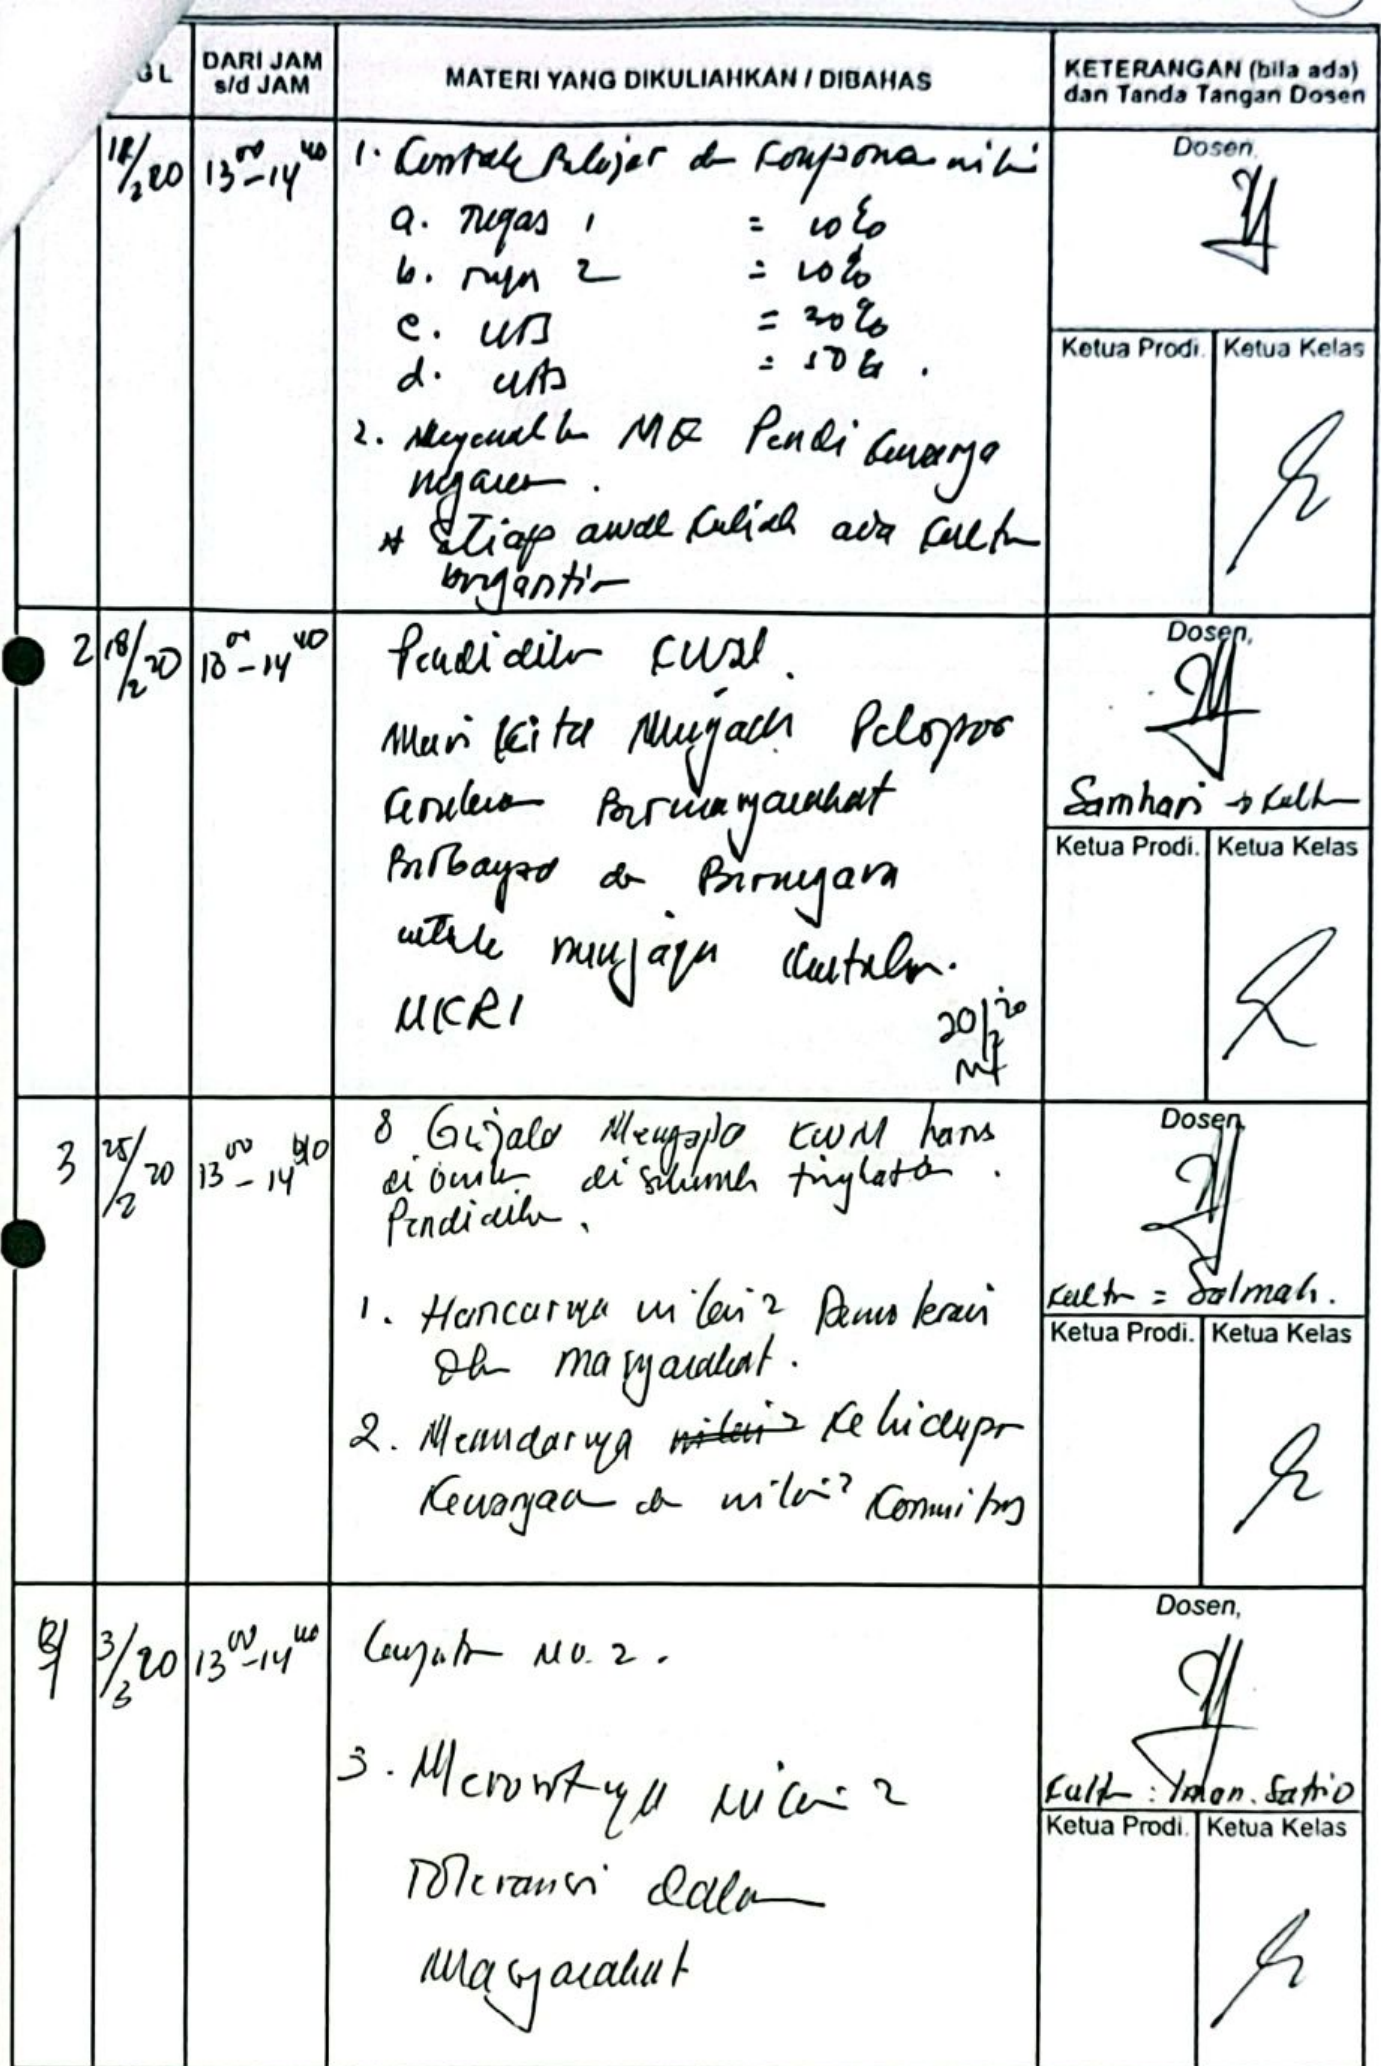 GL
DARI JAM
s/d JAM
MATERI YANG DIKULIAHKAN / DIBAHAS
KETERANGAN (bila ada)
dan Tanda Tangan Dosen
/2 20
13 00 - 14 40
1. Kontrak Belajar dn Komponen nilai
a. Tugas 1 = 10%
b. Tugas 2 = 10%
c. UTS = 30%
d. UAS = 50%.
2. MK Pendi Kewarga
negaraan.
* Setiap awal kuliah ada kultm
bergantin
Dosen,
Ketua Prodi.
Ketua Kelas
2
18/2 20
13 00 - 14 40
Pendidikn KWN.
Mari Kita Pelopor
Bermasyarakat
Berbangsa dn Bernegara
untuk menjaga
NKRI
20/2 20
Dosen,
Samhari → kultm
Ketua Prodi.
Ketua Kelas
3
25/2 20
13 00 - 14 40
8 Gejala Mengapa KWN harus
di di seluruh tingkatan.
Pendidikn.
1. Hancurnya nilai2 Demokrasi
dlm masyarakat.
2. Memudarnya Kehidupn
Kewargaan dn nilai2 Komunitas
Dosen,
kultm = Salmah.
Ketua Prodi.
Ketua Kelas
3/3 20
13 00 - 14 40
Lanjutn No. 2.
3. Merosotnya nilai2
Toleransi dalam
Masyarakat
Dosen,
Kultm : Iman. Satrio
Ketua Prodi.
Ketua Kelas